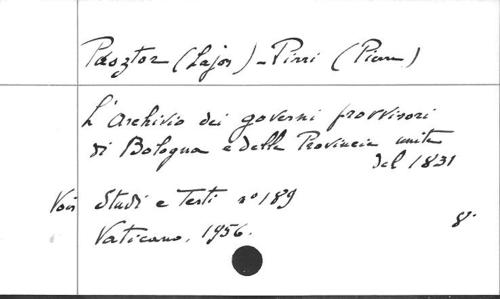 Pásztor (Lajos) - Pirri (Pierre)
L'Archivio dei governi provvisori
di Bologna e delle Provincie unite
del 1831
Voir Studi e Testi n° 189
Vaticano, 1956.
8°